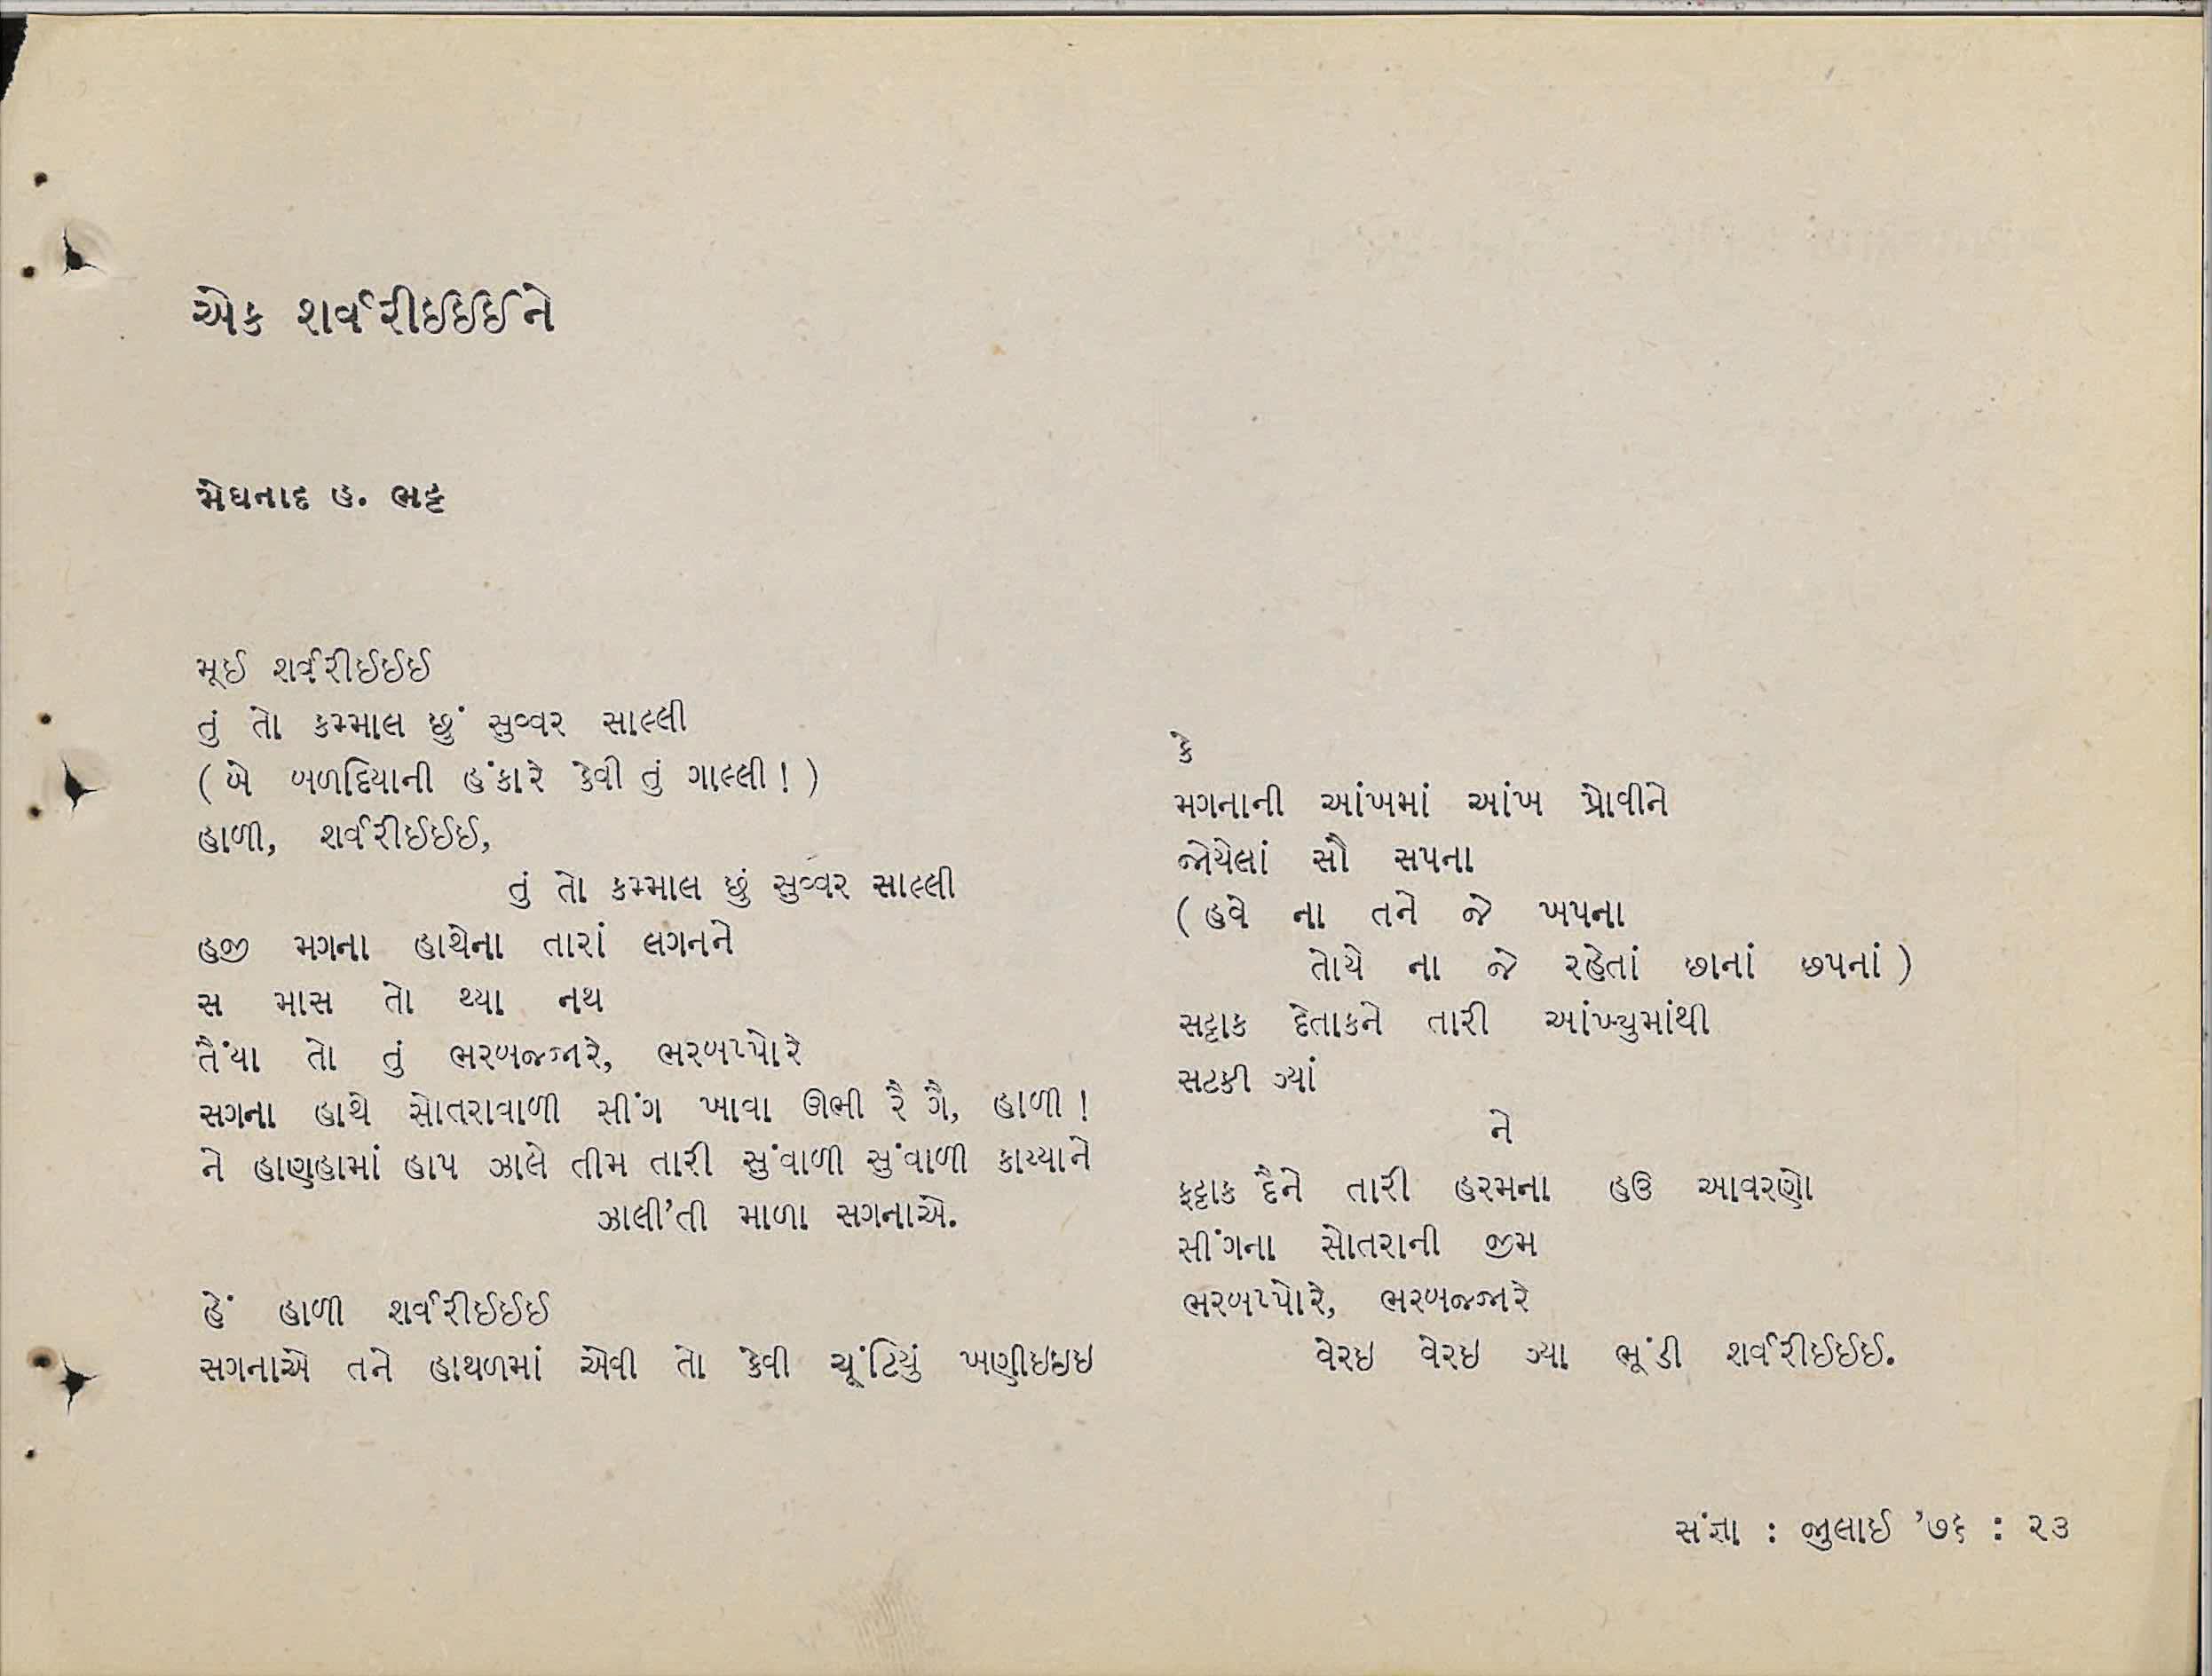 એક શર્વરીઈઈઈને
મેઘનાદ હ. ભટ્ટ
મૂઈ શર્વરીઈઈઈ
તું તો કમ્માલ છું સુવ્વર સાલ્લી
( બે બળદિયાની હંકારે કેવી તું ગાલ્લી ! )
હાળી, શર્વરીઈઈઈ,
તું તો કમ્માલ છું સુવ્વર સાલ્લી
હજી મગના હાથેના તારાં લગનને
સ માસ તો થ્યા નથ
તૈંયા તો તું ભરબજ્જારે, ભરબપ્પોરે
સગના હાથે સોતરાવાળી સીંગ ખાવા ઊભી રૈ ગૈ, હાળી !
ને હાણહામાં હાપ ઝાલે તીમ તારી સુંવાળી સુંવાળી કાય્યાને
ઝાલી’તી માળા સગનાએ.
હેં હાળી શર્વરીઈઈઈ
સગનાએ તને હાથળમાં એવી તો કેવી ચૂંટિયું ખણીઇઇઇ
કે
મગનાની આંખમાં આંખ પ્રોવીને
જોયેલાં સૌ સપના
( હવે ના તને જે ખપના
તોયે ના જે રહેતાં છાનાં છપનાં )
સટ્ટાક દેતાકને તારી આંખ્યુમાંથી
સટકી ગ્યાં
ને
ફટ્ટાક દૈને તારી હરમના હઉ આવરણો
સીંગના સોતરાની જીમ
ભરબપ્પોરે, ભરબજ્જારે
વેરઇ વેરઇ ગ્યા ભૂંડી શર્વરીઈઈઈ.
સંજ્ઞા : જુલાઈ ’૭૬ : ૨૩